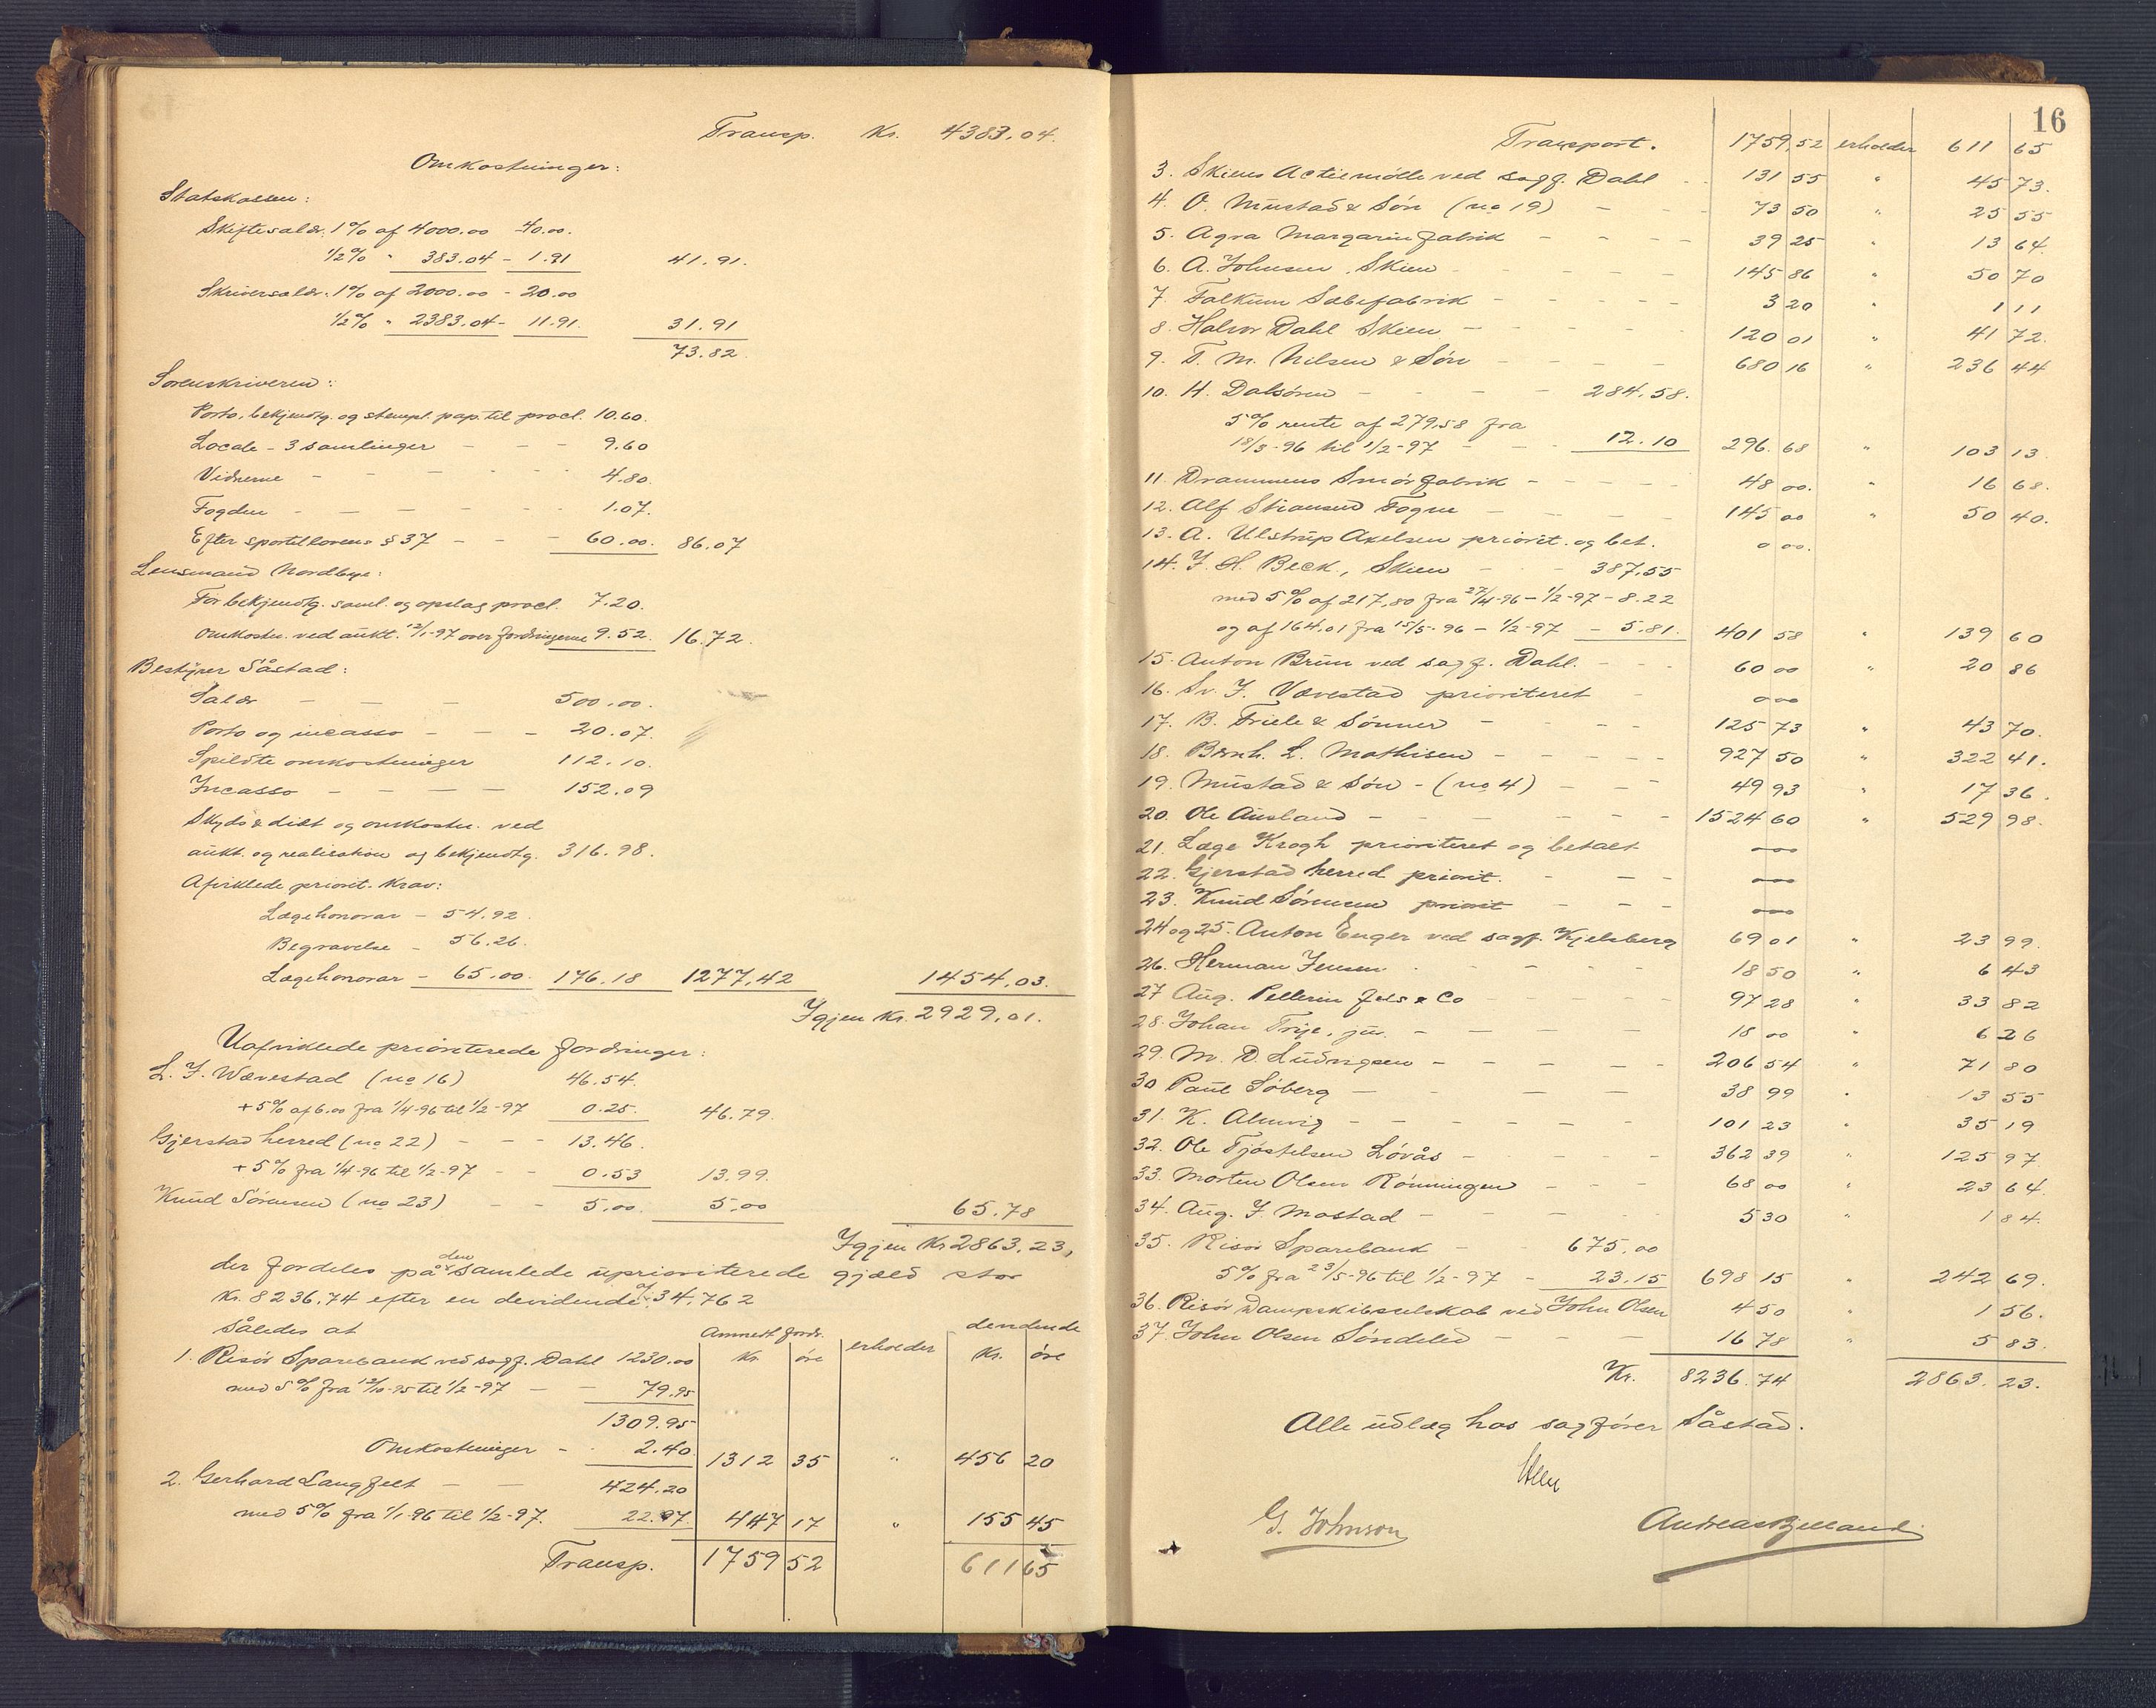 Transp. Kr. 4383.04.
Omkostninger:
Statskassen:
Skiftesalær: 1% af 4000.00 40.00.
½% " 383.04 - 1.91 41.91.
Skriversalær: 1% af 2000.00 - 20.00
½% " 2383.04 - 11.91. 31.91
73.82.
Sorenskriveren:
Porto, bekjendtg. og stempl. pap. til procl. 10.60.
Locale - 3 samlinger - - - 9.60
Vidnerne - - - - - 4.80.
Fogden - - - - - 1.07.
Efter sportellovens § 37 - - - 60.00. 86.07
Lensmand Nordbye:
For bekjendtg. saml. og opslag procl. 7.20.
Omkostn. ved aukt. 12/1-97 over fordringerne 9.52. 16.72.
Bestyrer Såstad:
Salær - - - 500.00.
Porto og incasso - - - 20.07.
Spildte omkostninger 112.10.
Incasso - - - - 152.09
Skyds & diæt og omkostn. ved
aukt. og realisation og bekjendtg. 316.98.
Afviklede priorit. krav:
Lægehonorar - 54.92.
Begravelse - 56.26.
Lægehonorar - 65.00. 176.18 1277.42 1454.03.
Igjen Kr. 2929.01.
Uafviklede prioriterede fordringer:
L. J. Wævestad (no 16) 46.54.
+ 5% af 6.00 fra 1/4-96 til 1/2-97 0.25. 46.79.
Gjerstad herred (no 22) - - - 13.46.
+ 5% fra 1/4-96 til 1/2-97 - - 0.53 13.99.
Knud Sörensen (no 23) - - 5.00. 5.00 65.78
Igjen Kr 2863.23,
der fordeles på den samlede uprioriterede gjæld stor
Kr. 8236.74 efter en devidende af 34,762
således at
Anmeldt fordr. dendende
Kr. öre erholder Kr. öre
1. Risör Sparebank ved sagf. Dahl 1230.00
med 5% fra 12/10-95 til 1/2-97 - - 79.95
1309.95
Omkostninger - - 2.40 1312 35 " 456 20
2. Gerhard Langfelt - - 424.20
med 5% fra 1/1-96 til 1/2-97. 22.97. 447 17 " 155 45
Transp. 1759 52 611 65
16
Transport. 1759,52 erholder 611 65
3. Skiens Actiemölle ved sagf. Dahl - - 131 55 " 45 73.
4. O. Mustad & Sön (no 19) - - - 73 50 " 25 55
5. Agra Margarinfabrik - - - - 39 25 " 13 64.
6. A. Johnsen, Skien - - - - 145 86 " 50 70
7. Falkum Sæbefabrik - - - - - 3 20 " 1 11
8. Halvor Dahl Skien - - - - - 120 01 " 41 72.
9. T. M. Nilsen & Sön - - - - 680 16 " 236 44
10. H. Dalsören - - - - 284.58.
5% rente af 279.58 fra
18/3-96 til 1/2-97 - - 12.10 296. 68 " 103 13.
11. Drammens Smörfabrik - - - - - 48 00. " 16 68.
12. Alf Stiansen Fogne - - - - 145 00 " 50 40.
13. A. Ulstrup Axelsen priorit. og bet. 0 00.
14. J. H. Beck, Skien - - - 387.55
med 5% af 217,80 fra 27/4-96 - 1/2-97 - 8.22
og af 164.01 fra 15/5-96 - 1/2-97 - 5.81. 401 58 " 139 60
15. Anton Brun ved sagf. Dahl. - - - 60 00 " 20 86
16. Sv. J. Vævestad prioriteret - 0 00
17. B. Friele & Sönner - - - - 125 73 " 43 70.
18. Bernh. L. Mathisen - - - - - 927 50 " 322 41.
19. Mustad & Sön - (no 4) - - - 49 93 " 17 36.
20. Ole Ausland - - - - - - - 1524 60 " 529 98.
21. Læge Krogh prioriteret og betalt 0 00
22. Gjerstad herred priorit. - - - 0 00
23. Knud Sörensen priorit - - - 0 00
24 og 25. Anton Enger ved sagf. Kjelsberg 69 01 " 23 99.
26. Herman Jensen - - - - - 18 50 " 6 43
27 Aug. Pellerin fils & Co - - - - 97 28 " 33 82
28. Johan Trije, jun. - - - - - 18 00 " 6 26
29. M. D. Ludvigsen - - - - - 206 54 " 71 80
30 Paul Söberg - - - - - 38 99 " 13 55
31. K. Almvig - - - - - - 101 23 " 35 19
32. Ole Tjöstelsen Lövås - - - - 362 39 " 125 97.
33. Morten Olsen Rönningen - - - 68 00 " 23 64.
34. Aug. J. Mostad - - - - - 5 30 " 1 84.
35. Risör Sparebank - - 675.00
5% fra 23/5-96 til 1/2-97 - 23.15 698 15 " 242 69.
36. Risör Dampskibsselskab ved John Olsen 4 50 " 1 56.
37. John Olsen Söndeled - - - 16 78 " 5 83.
Kr. 8236.74 2863. 23.
Alle udlæg hos sagförer Såstad.
G. Johnson